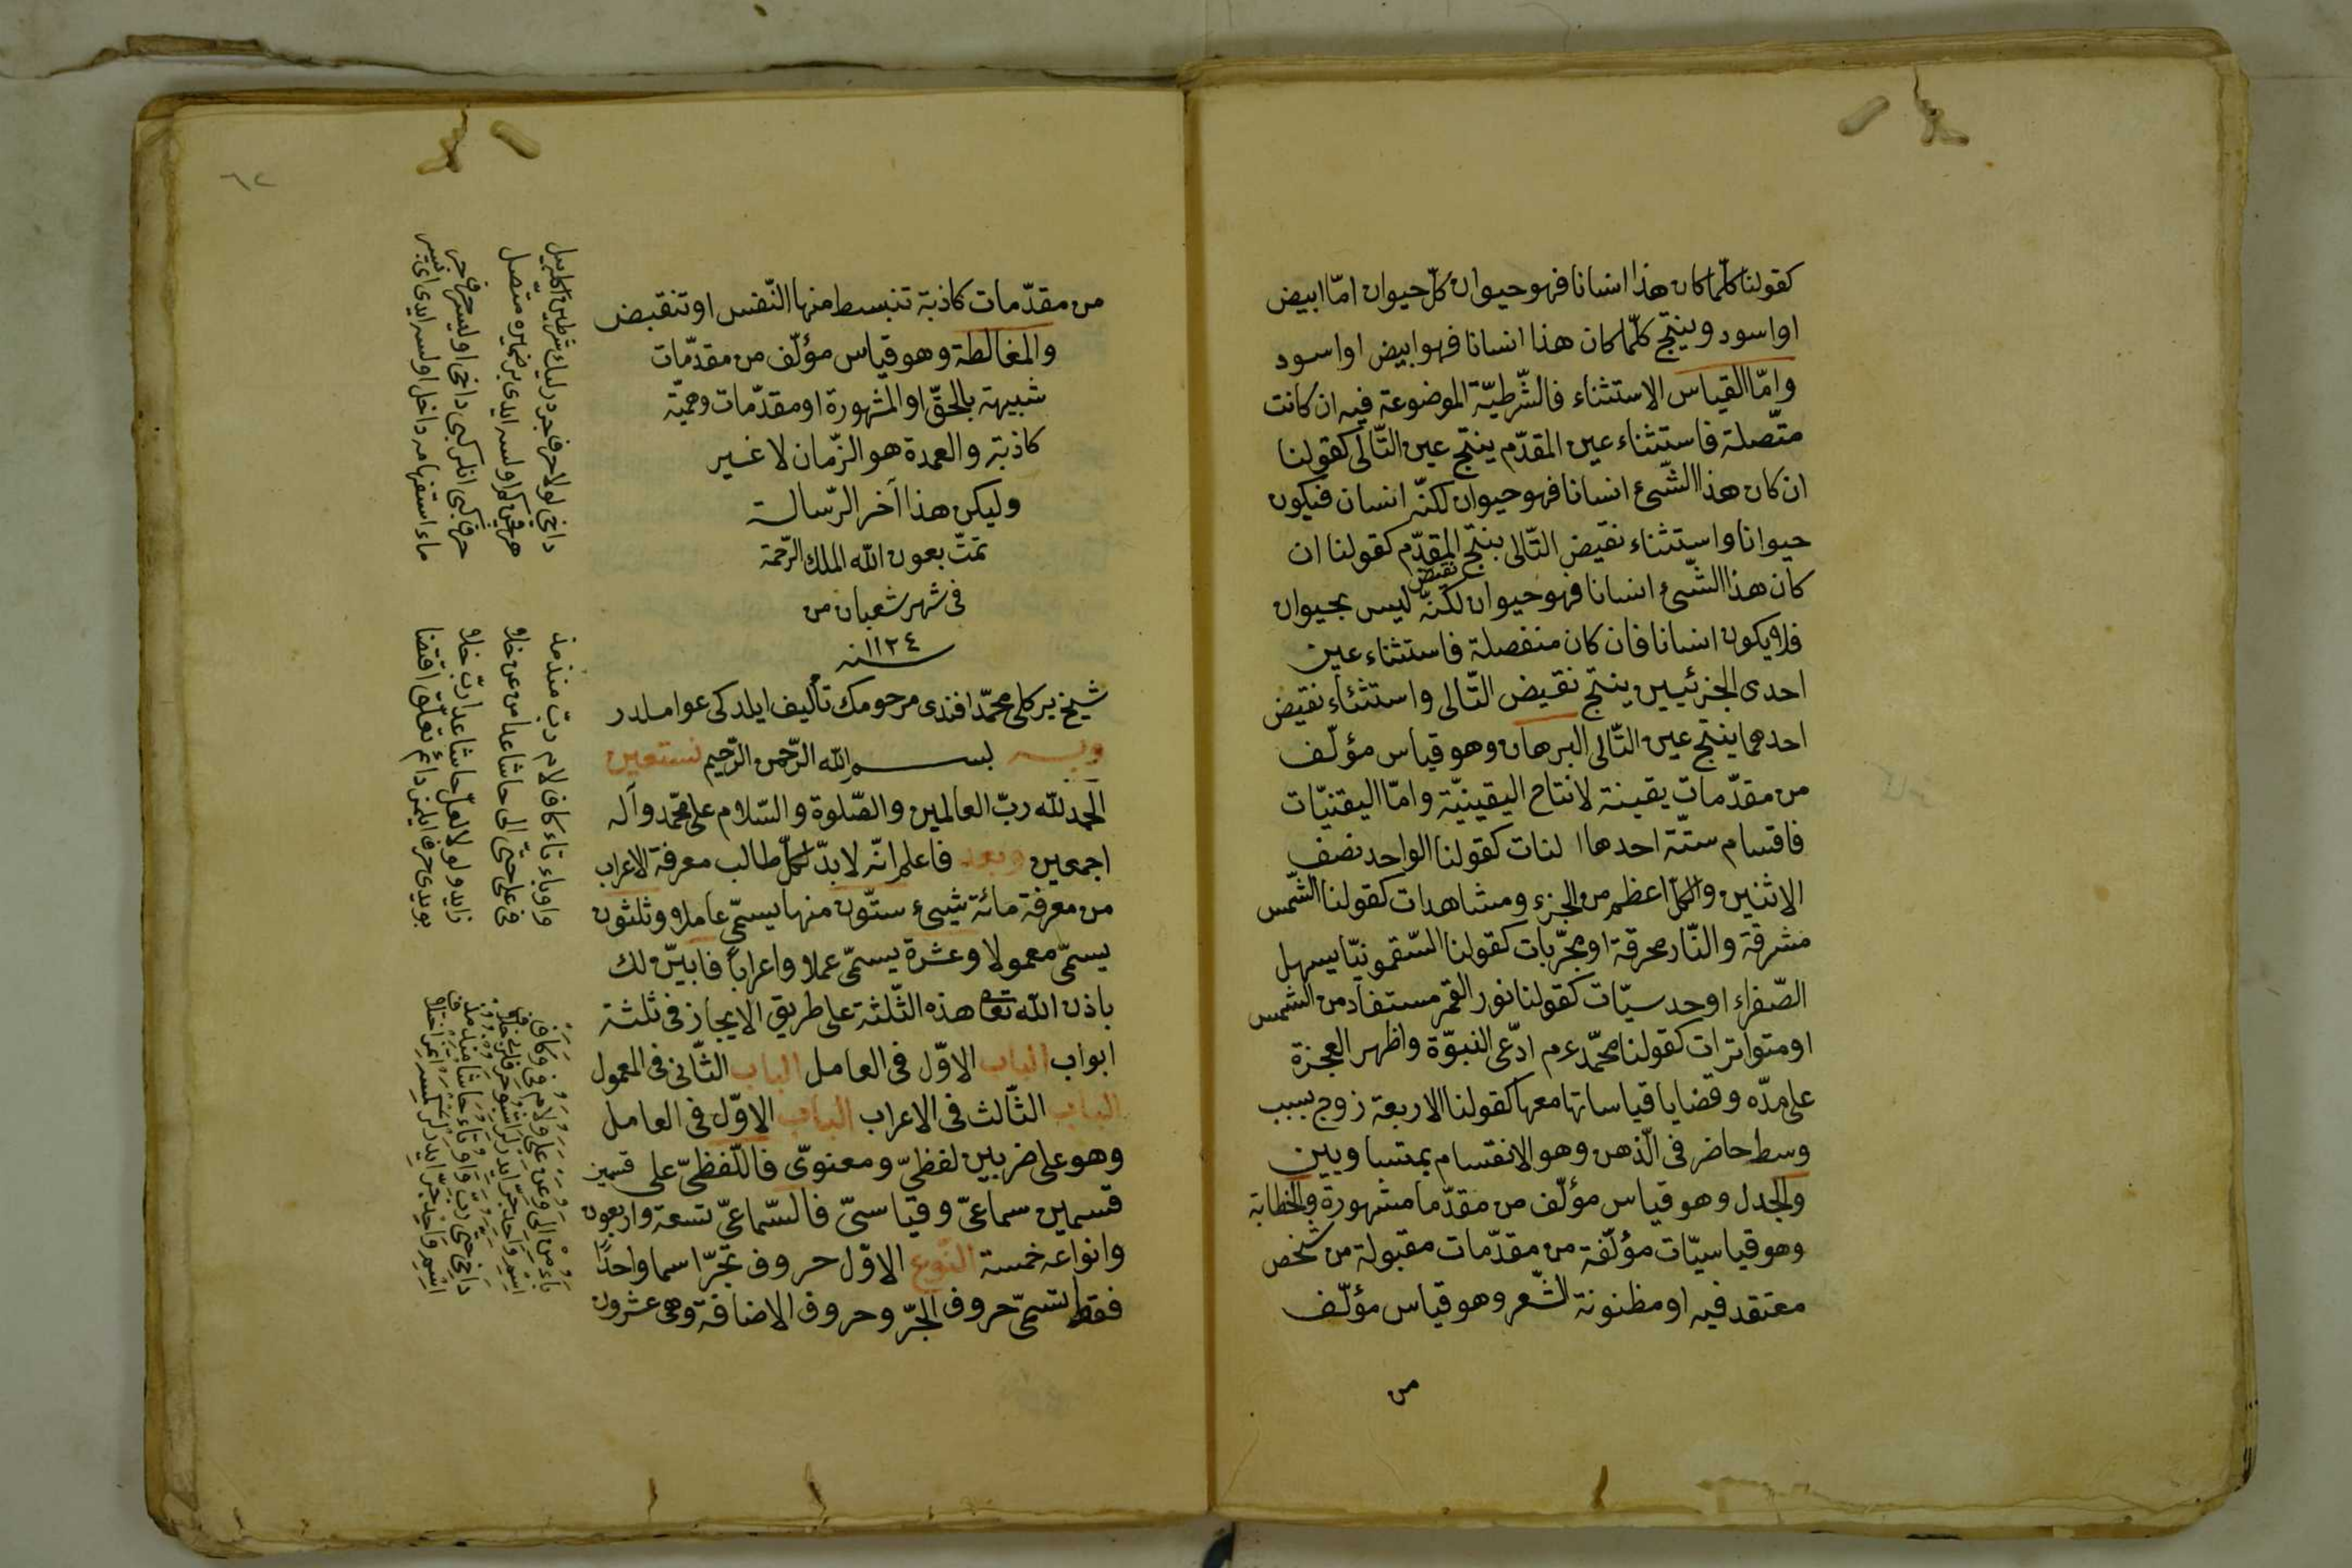 كقولنا كلّما كان هذا انسانا فهو حيوان كلّ حيوان امّا ابيض
او اسود وينتج كلّما كان هذا انسانا فهو ابيض او اسود
وامّا القياس الاستثناء فالشّرطيّة الموضوعة فيه ان كانت
متّصلة فاستثناء عين المقدّم ينتج عين التّالى كقولنا
ان كان هذا الشّىء انسانا فهو حيوان لكنّه انسان فيكون
حيوانا واستثناء نقيض التّالى ينتج المقدّم كقولنا ان
نقيض
كان هذا الشّىء انسانا فهو حيوان لكنّه ليس بحيوان
فلا يكون انسانا فان كان منفصلة فاستثناء عين
احدى الجزئيين ينتج نقيض التّالى واستثناء نقيض
احدهما ينتج عين التّالى البرهان وهو قياس مؤلّف
من مقدّمات يقينة لانتاح اليقينيّة وامّا اليقنيّات
فاقسام ستّة احدها ا لنات كقولنا الواحد نصف
الاثنين والكلّ اعظم من الجزء ومشاهدات كقولنا الشّمس
مشرقة والنّار محرقة او مجرّبات كقولنا السّقمونيّا يسهل
الصّفراء او حدسيّات كقولنا نور القمر مستفاد من الشمس
او متواترات كقولنا محمّد عم ادّعى النبوّة واظهر العجزة
على مدّه وقضايا قياساتها معها كقولنا الاربعة زوج بسبب
وسط حاضر فى الذّهن وهو الانقسام بمتساويين
والجدل وهو قياس مؤلّف من مقدّما مشهورة والخطابة
وهو قياسيّات مؤلّفة من مقدّمات مقبولة من شخص
معتقد فيه او مظنونة الشّعر وهو قياس مؤلّف
من
٦٢
من مقدّمات كاذبة تنبسط منها النّفس او تنقبض
والمغالطة وهو قياس مؤلّف من مقدّمات
شبيهة بالحقّ او المشهورة او مقدّمات وهميّة
كاذبة والعمدة هو الزّمان لا غير
وليكن هذا آخر الرّسالة
تمّت بعون الله الملك الرّحمة
فى شهر شعبان من
سنه ١١٢٤
شيخ بركلى محمّد افندى مرحومك تأليف ايلدكى عواملدر
وبه بسم الله الرّحمن الرّحيم نستعين
الحمد لله ربّ العالمين والصّلوة والسّلام على محمّد وآله
اجمعين وبعد فاعلم انّه لا بدّ لكلّ طالب معرفة الاعراب
من معرفة مائة شيىء ستّون منها يسمّى عاملا وثلثون
يسمّى معمولا وعشرة يسمّى عملا واعراباً فابيّن لك
باذن الله تعا هذه الثّلثة على طريق الايجاز فى ثلثة
ابواب الباب الاوّل فى العامل الباب الثّانى فى المعمول
الباب الثّالث فى الاعراب الباب الاوّل فى العامل
وهو على ضربين لفظىّ ومعنوىّ فاللّفظىّ على قسمين
قسمين سماعىّ وقياسىّ فالسّماعىّ تسعة واربعون
وانواعه خمسة النّوع الاوّل حروف تجرّ اسما واحدًا
فقط تسمّى حروف الجرّ وحروف الاضافة وهى عشرون
واو باء تاء كاف لام ربّ منذ مذ
فى على حتّى الى حاشا عدا من عن خلا
زايد ولولا لعلّ حاشا عدا ربّ خلا